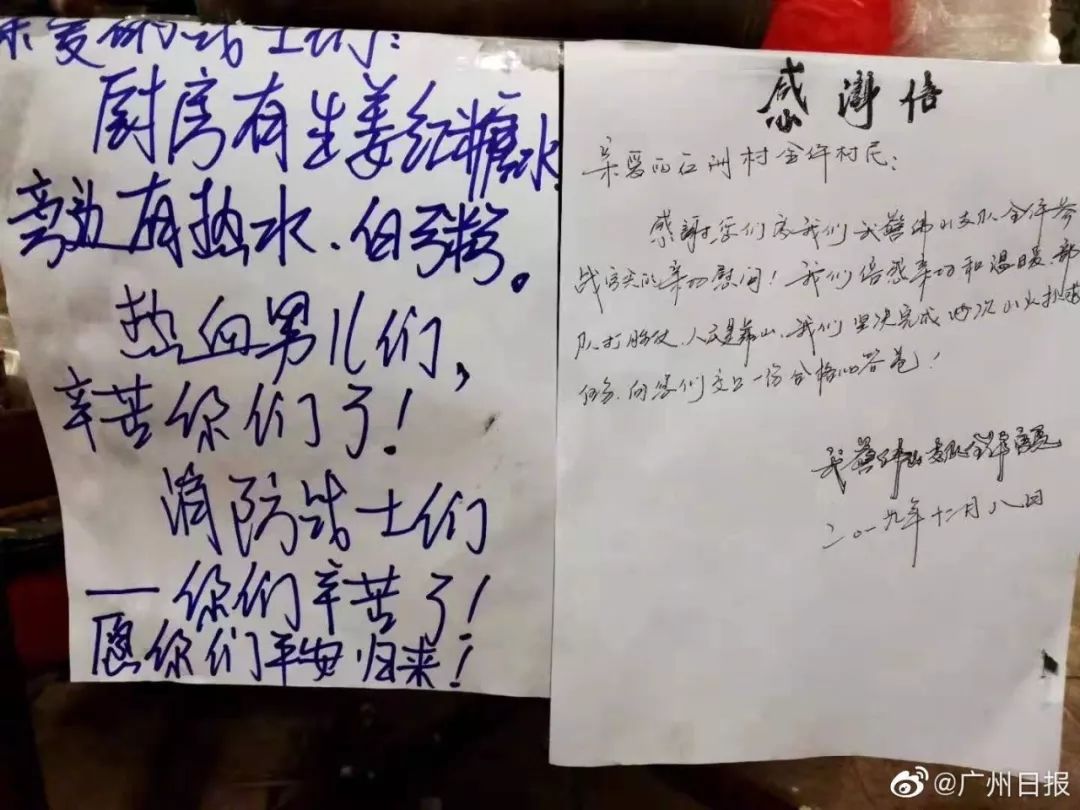 亲爱的战士们:
厨房有生姜红糖水,
旁边有热水、白粥。
热血男儿们,
辛苦你们了!
消防战士们
——你们辛苦了!
愿你们平安归来!
感谢信
亲爱的石洲村全体村民:
感谢您们家我们武警佛山支队全体参
战官兵的亲切慰问!我们倍感亲切和温暖、部
队打胜仗、人民是靠山、我们坚决完成此次山火扑救
任务、向您们交上一份合格的答卷!
武警佛山支队全体官兵
二〇一九年十二月八日
@广州日报